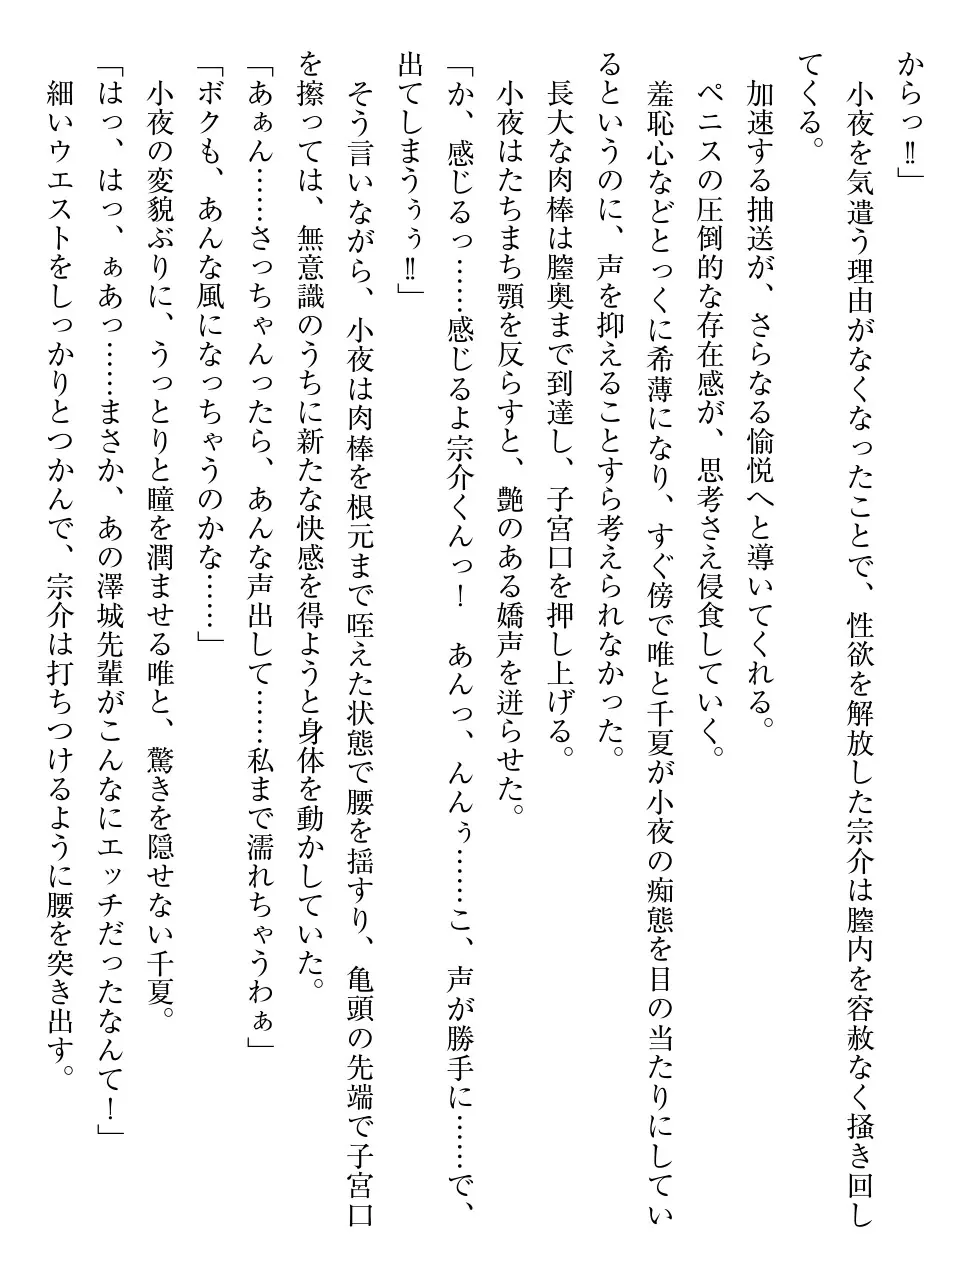 からっ‼」
　小夜を気遣う理由がなくなったことで、性欲を解放した宗介は膣内を容赦なく掻き回し
てくる。
　加速する抽送が、さらなる愉悦へと導いてくれる。
　ペニスの圧倒的な存在感が、思考さえ侵食していく。
　羞恥心などとっくに希薄になり、すぐ傍で唯と千夏が小夜の痴態を目の当たりにしてい
るというのに、声を抑えることすら考えられなかった。
　長大な肉棒は膣奥まで到達し、子宮口を押し上げる。
　小夜はたちまち顎を反らすと、艶のある嬌声を迸らせた。
「か、感じるっ……感じるよ宗介くんっ！　あんっ、んんぅ……こ、声が勝手に……で、
出てしまうぅぅ‼」
　そう言いながら、小夜は肉棒を根元まで咥えた状態で腰を揺すり、亀頭の先端で子宮口
を擦っては、無意識のうちに新たな快感を得ようと身体を動かしていた。
「あぁん……さっちゃんったら、あんな声出して……私まで濡れちゃうわぁ」
「ボクも、あんな風になっちゃうのかな……」
　小夜の変貌ぶりに、うっとりと瞳を潤ませる唯と、驚きを隠せない千夏。
「はっ、はっ、ぁあっ……まさか、あの澤城先輩がこんなにエッチだったなんて！」
　細いウエストをしっかりとつかんで、宗介は打ちつけるように腰を突き出す。